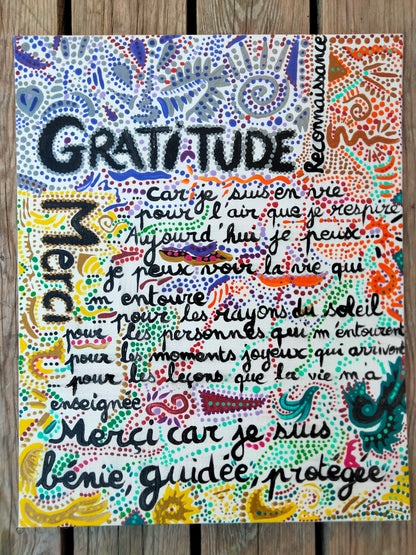 GRATITUDE
Reconnaissance
Merci
car je suis en vie
pour l'air que je respire
Aujourd'hui je peux
je peux voir la vie qui
m'entoure
pour les rayons du soleil
pour les personnes qui m'entourent
pour les moments joyeux qui arrivent
pour les leçons que la vie m'a
enseignée
Merçi car je suis
bénie, guidée, protégée